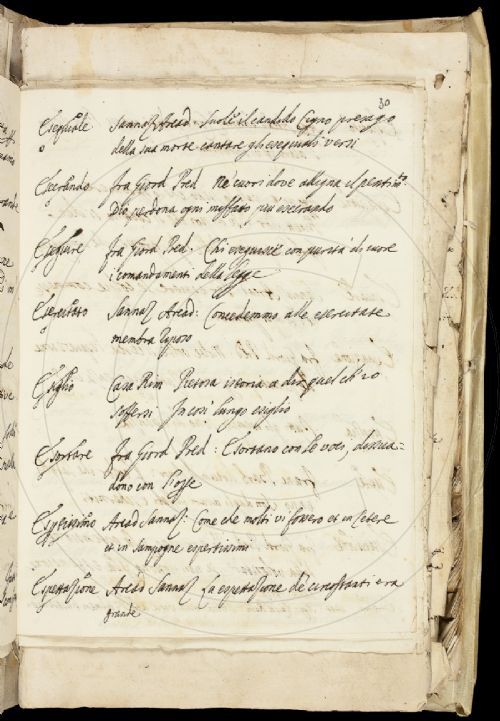 30
Esequiale Sannaz Arcad. Suole il candido Cigno presago
o della sua morte cantare gli esequiali versi
Esecrando fra Giord Pred Ne' cuori dove alligna il pentimto
Dio perdona ogni misfatto più esecrando
Eseguire fra Giord Pred. Chi eseguisce con purità di cuore
i comandamenti della legge
Esercitato Sannaz Arcad: Concedemmo alle esercitate
membra riposo
Esiglio Casa Rim Pietosa istoria a dir quel ch'io
soffersi In così lungo esiglio
Esortare fra Giord Pred: Esortano con le voci, dissua-
dono con
Espertissimo Arcad Sannaz: Come che molti vi fossero et in Cetere
et in Sampogne espertissimi
Espettazione Arcad Sannaz La espettazione de' circostanti era
grande